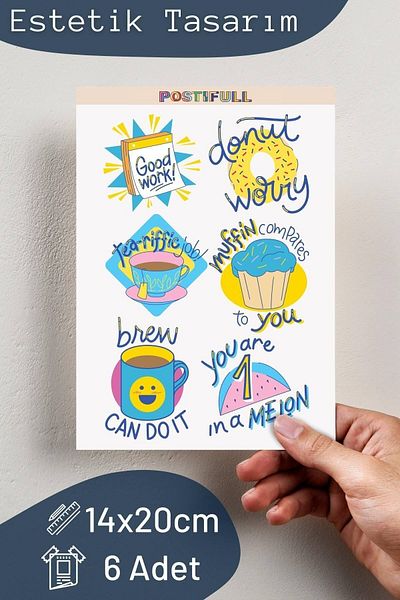 Estetik Tasarım
POSTIFULL
Good
work!
donut
worry
tea-riffic job!
muffin compares
to you
brew
CAN DO IT
you are
1
in a MELON
14x20cm
6 Adet